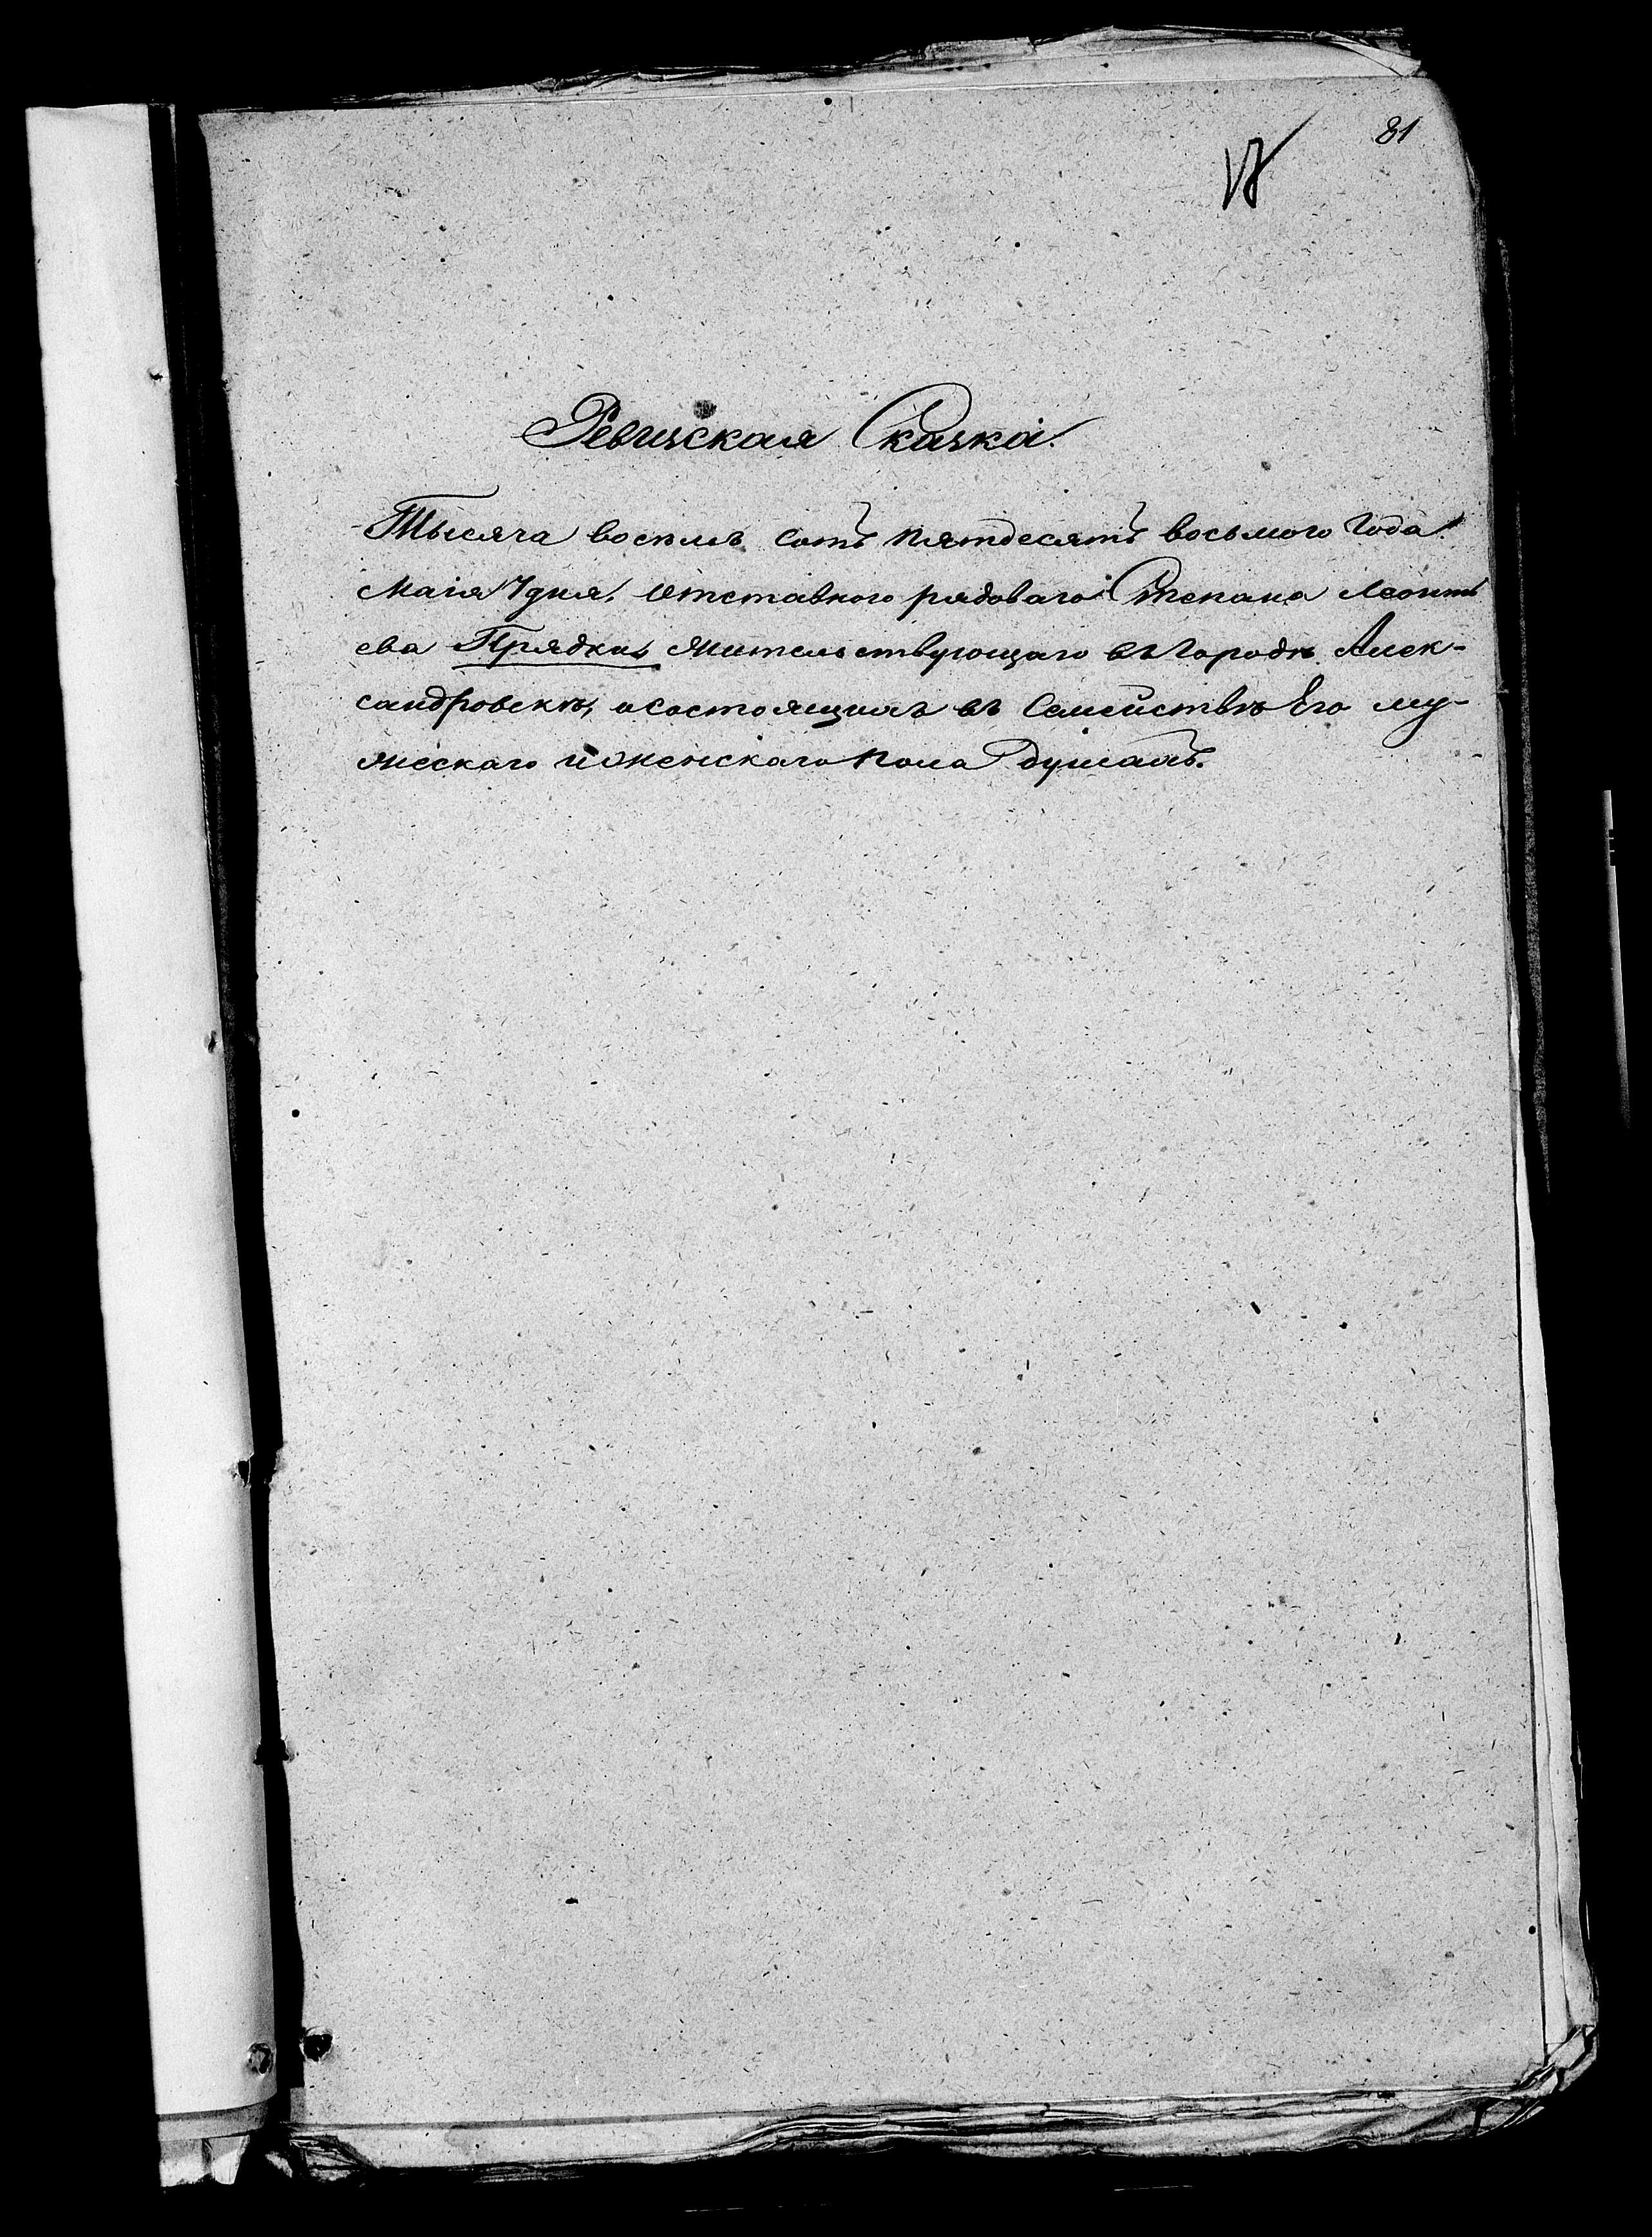 81
Ревизская Сказка.
Тысяча восемь сотъ пятдесятъ восьмого Года
Маія 7 дня, Отставного рядоваго Степана Леонть
ева Прядки Жительствующаго въ Городѣ Алек-
сандровскѣ, и состоящихъ въ Семействѣ Его му-
жескаго и женскаго пола Душахъ.